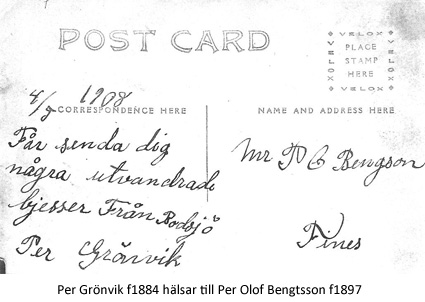 POST CARD
VELOX
VELOX
PLACE
STAMP
HERE
VELOX
VELOX
4/9 1908
CORRESPONDENCE HERE
NAME AND ADDRESS HERE
Får senda dig
några utvandrade
bjesser Från Bodsjö
Per Grönvik
Mr P O Bengson
Pines
Per Grönvik f1884 hälsar till Per Olof Bengtsson f1897